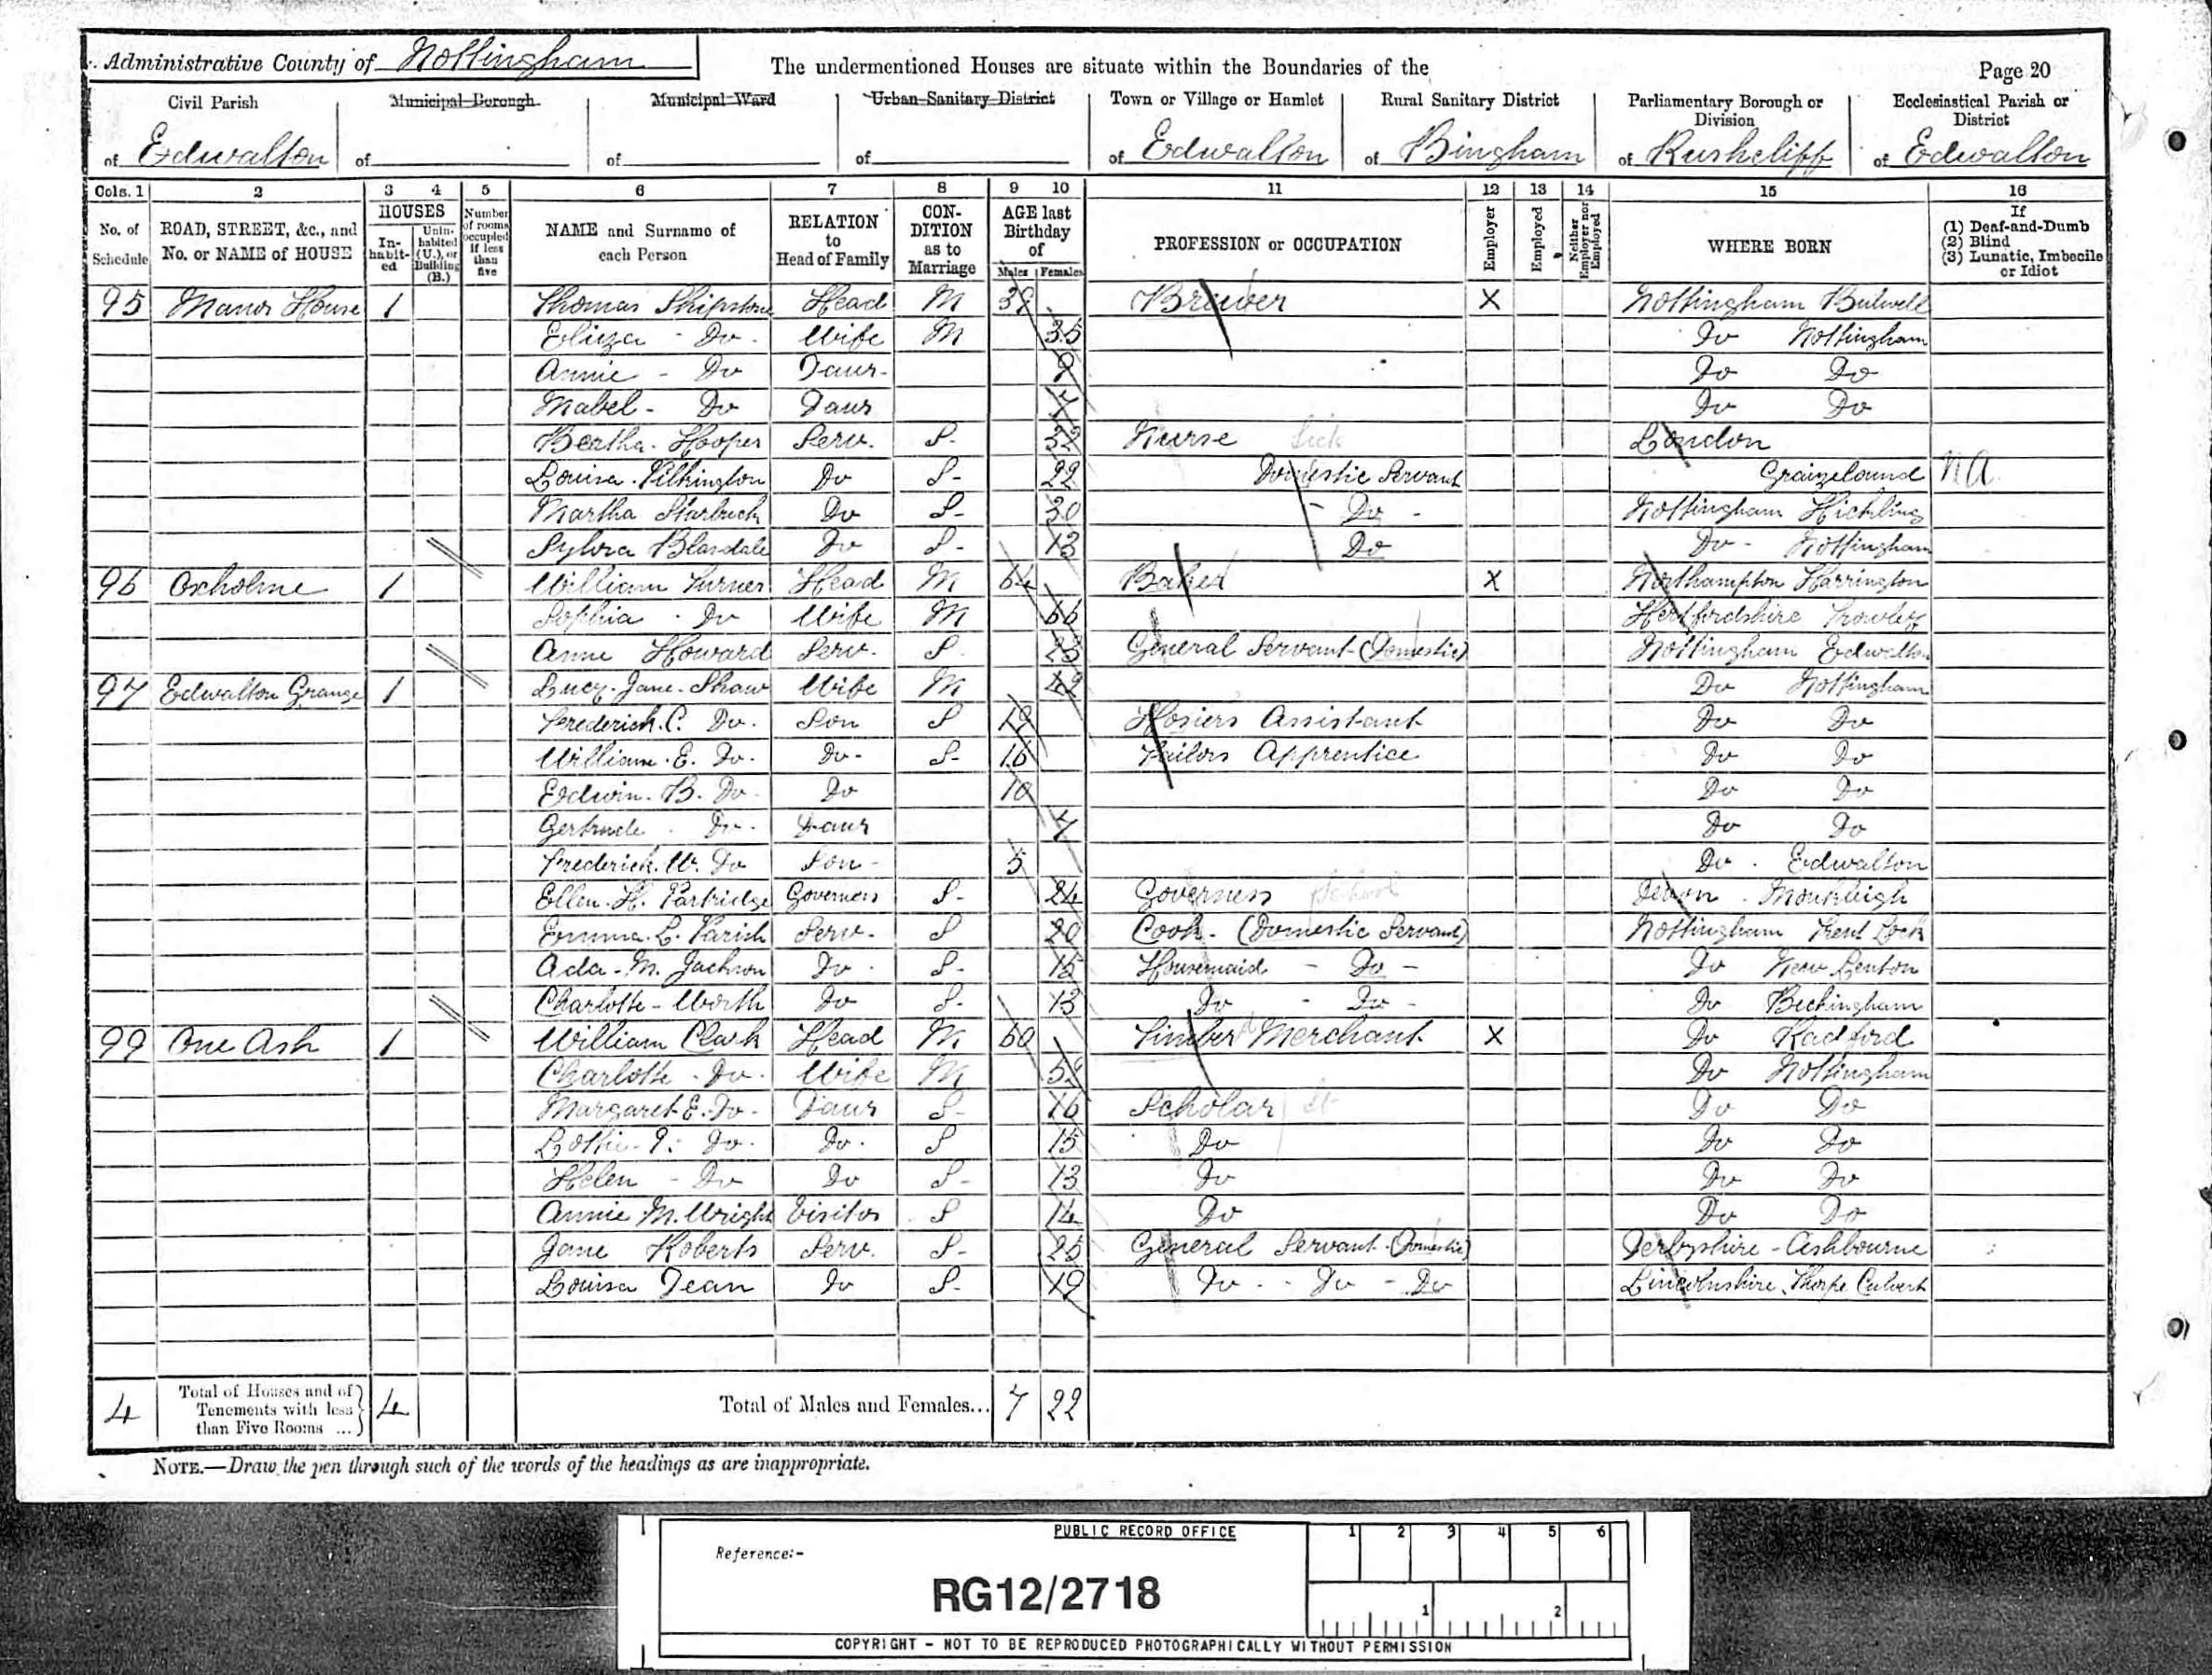 Administrative County of Nottingham
The undermentioned Houses are situate within the Boundaries of the
Page 20
Civil Parish of Edwalton
Municipal Borough of
Municipal Ward of
Urban Sanitary District of
Town or Village or Hamlet of Edwalton
Rural Sanitary District of Bingham
Parliamentary Borough or Division of Rushcliff
Ecclesiastical Parish or District of Edwalton
Cols. 1 2 3 4 5 6 7 8 9 10 11 12 13 14 15 16
No. of Schedule
ROAD, STREET, &c., and No. or NAME of HOUSE
HOUSES
In-habit-ed
Unin-habited (U.), or Building (B.)
Number of rooms occupied if less than five
NAME and Surname of each Person
RELATION to Head of Family
CON-DITION as to Marriage
AGE last Birthday of
Males Females
PROFESSION or OCCUPATION
Employer
Employed
Neither Employer nor Employed
WHERE BORN
If (1) Deaf-and-Dumb (2) Blind (3) Lunatic, Imbecile or Idiot
95 Manor House 1 Thomas Shipstone Head M 39 Brewer X Nottingham Bulwell
Eliza - Do - Wife M 35 Do Nottingham
Annie - Do Daur - 9 Do Do
Mabel - Do Daur 7 Do Do
Bertha Hooper Serv. S - 32 Nurse Sick London
Louisa Pilkington Do S - 22 Domestic Servant Graizelound NA.
Martha Starbuck Do S - 30 - Do - Nottingham Hickling
Sylvia Blasdale Do S - 13 Do Do - Nottingham
96 Oxholme 1 William Turner Head M 64 Baker X Northampton Harrington
Sophia - Do Wife M 66 Hertfordshire
Anne Howard Serv. S. 23 General Servant (Domestic) Nottingham Edwalton
97 Edwalton Grange 1 Lucy Jane Shaw Wife M 42 Do Nottingham
Frederick. C. Do. Son S 19 Hosiers Assistant Do Do
William. E. Do. Do - S - 16 Tailors Apprentice Do Do
Edwin. B. Do. Do 10 Do Do
Gertrude - Do. Daur 7 Do Do
Frederick. W. Do Son - 5 Do. Edwalton
Ellen. H. Partridge Governess S - 24 Governess School Devon. Monkleigh
Emma. L. Parish Serv. S 20 Cook - (Domestic Servant) Nottingham Trent Lock
Ada - M. Jackson Do. S - 15 Housemaid - Do - Do New Lenton
Charlotte - Worth Do S - 13 Do - Do - Do Beckingham
99 One Ash 1 William Clark Head M 60 Timber Merchant X Do Radford
Charlotte - Do. Wife M Do Nottingham
Margaret E. Do - Daur S - 16 Scholar Do Do
Lottie Do. Do. S 15 Do Do Do
Helen - Do Do S - 13 Do Do Do
Annie M. Wright Visitor S 14 Do Do Do
Jane Roberts Serv. S - 25 General Servant (Domestic) Derbyshire - Ashbourne
Louisa Dean Do S - 19 Do - Do - Do Lincolnshire, Thorpe Culvert
4 Total of Houses and of Tenements with less than Five Rooms ... 4 Total of Males and Females... 7 22
NOTE.—Draw the pen through such of the words of the headings as are inappropriate.
PUBLIC RECORD OFFICE
1 2 3 4 5 6
Reference:-
RG12/2718
1 2
COPYRIGHT - NOT TO BE REPRODUCED PHOTOGRAPHICALLY WITHOUT PERMISSION